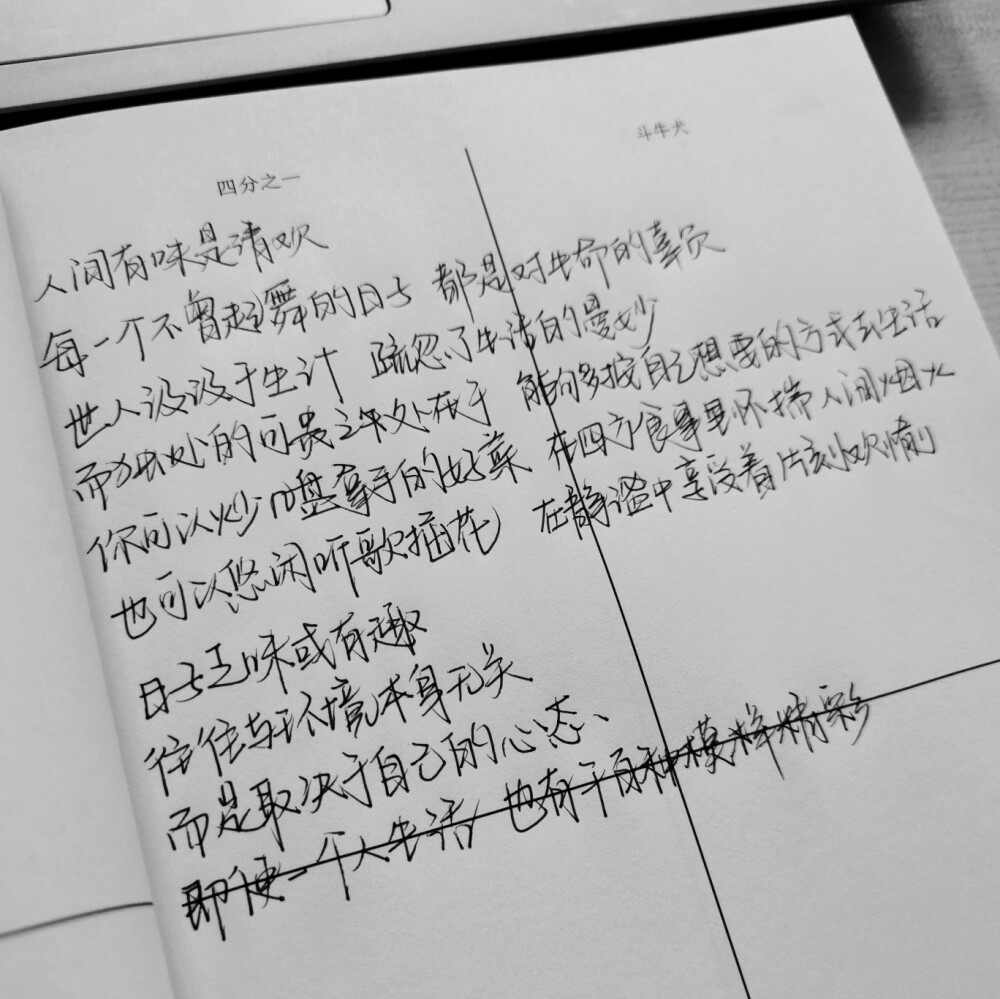 四分之一
斗牛犬
人间有味是清欢
每一个不曾起舞的日子 都是对生命的辜负
世人汲汲于生计 疏忽了生活的曼妙
而独处的可贵之处在于 能够多按自己想要的方式去生活
你可以炒几盘拿手的好菜 在四方食事里怀揣人间烟火
也可以悠闲听歌插花 在静谧中享受着片刻欢愉
日子乏味或有趣
往往与环境本身无关
而是取决于自己的心态、
即使一个人生活 也有千百种模样精彩